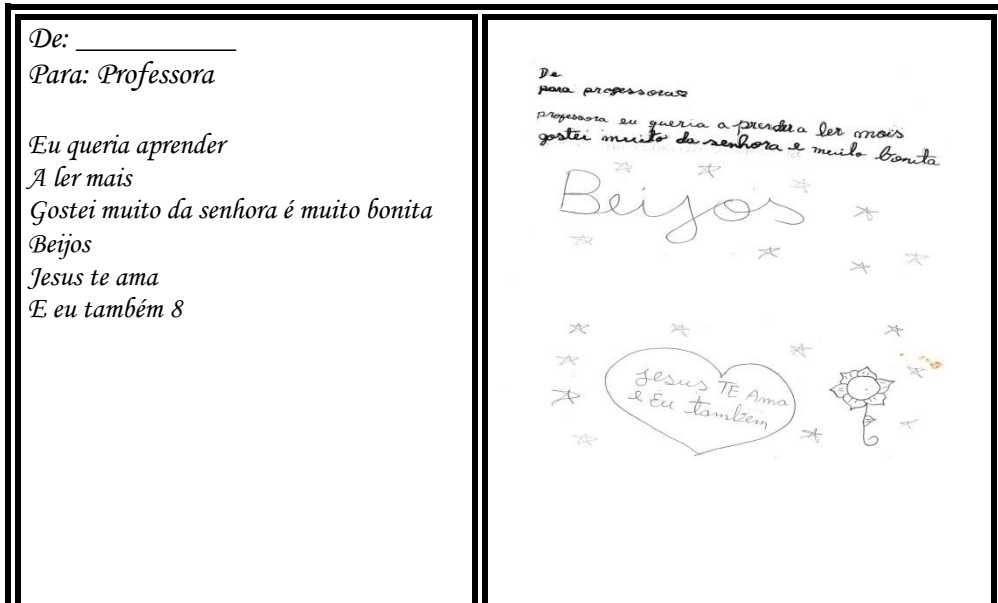 De: ___________
Para: Professora
Eu queria aprender
A ler mais
Gostei muito da senhora é muito bonita
Beijos
Jesus te ama
E eu também 8
De
para professora
professora eu queria a prender a ler mais
gostei muito da senhora e muito bonita
Beijos
Jesus TE Ama
e Eu também